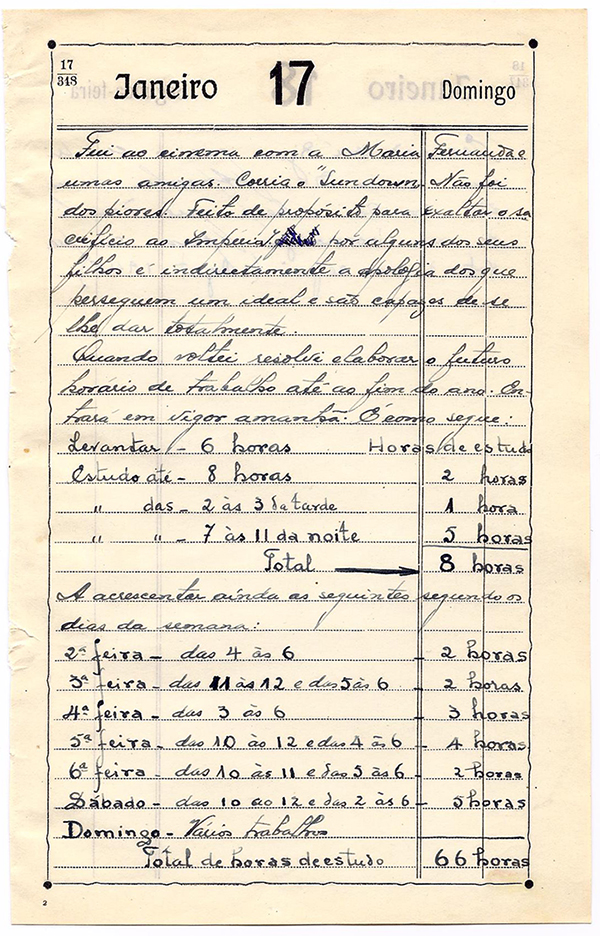 17
348
Janeiro 17 Domingo
Fui ao cinema com a Maria Fernanda e
umas amigas. Corria o "Sundown. Não foi
dos piores. Feito de propósito para exaltar o sa
crifício ao Império por alguns dos seus
filhos é indirectamente a apologia dos que
perseguem um ideal e são capazes de se
lhe dar totalmente.
Quando voltei resolvi elaborar o futuro
horário de trabalho até ao fim do ano. En
trará em vigor amanhã. É como segue:
Levantar - 6 horas Horas de estudo
Estudo até - 8 horas 2 horas
" das - 2 às 3 da tarde 1 hora
" " - 7 às 11 da noite 5 horas
Total 8 horas
A acrescentar ainda as seguintes segundo os
dias da semana:
2ª feira - das 4 às 6 - 2 horas
3ª feira - das 11 às 12 e das 5 às 6 - 2 horas
4ª feira - das 3 às 6 - 3 horas
5ª feira - das 10 às 12 e das 4 às 6 - 4 horas
6ª feira - das 10 às 11 e das 5 às 6 - 2 horas
Sábado - das 10 ao 12 e das 2 às 6 - 5 horas
Domingo - Vários trabalhos
Total de horas de estudo 66 horas
2